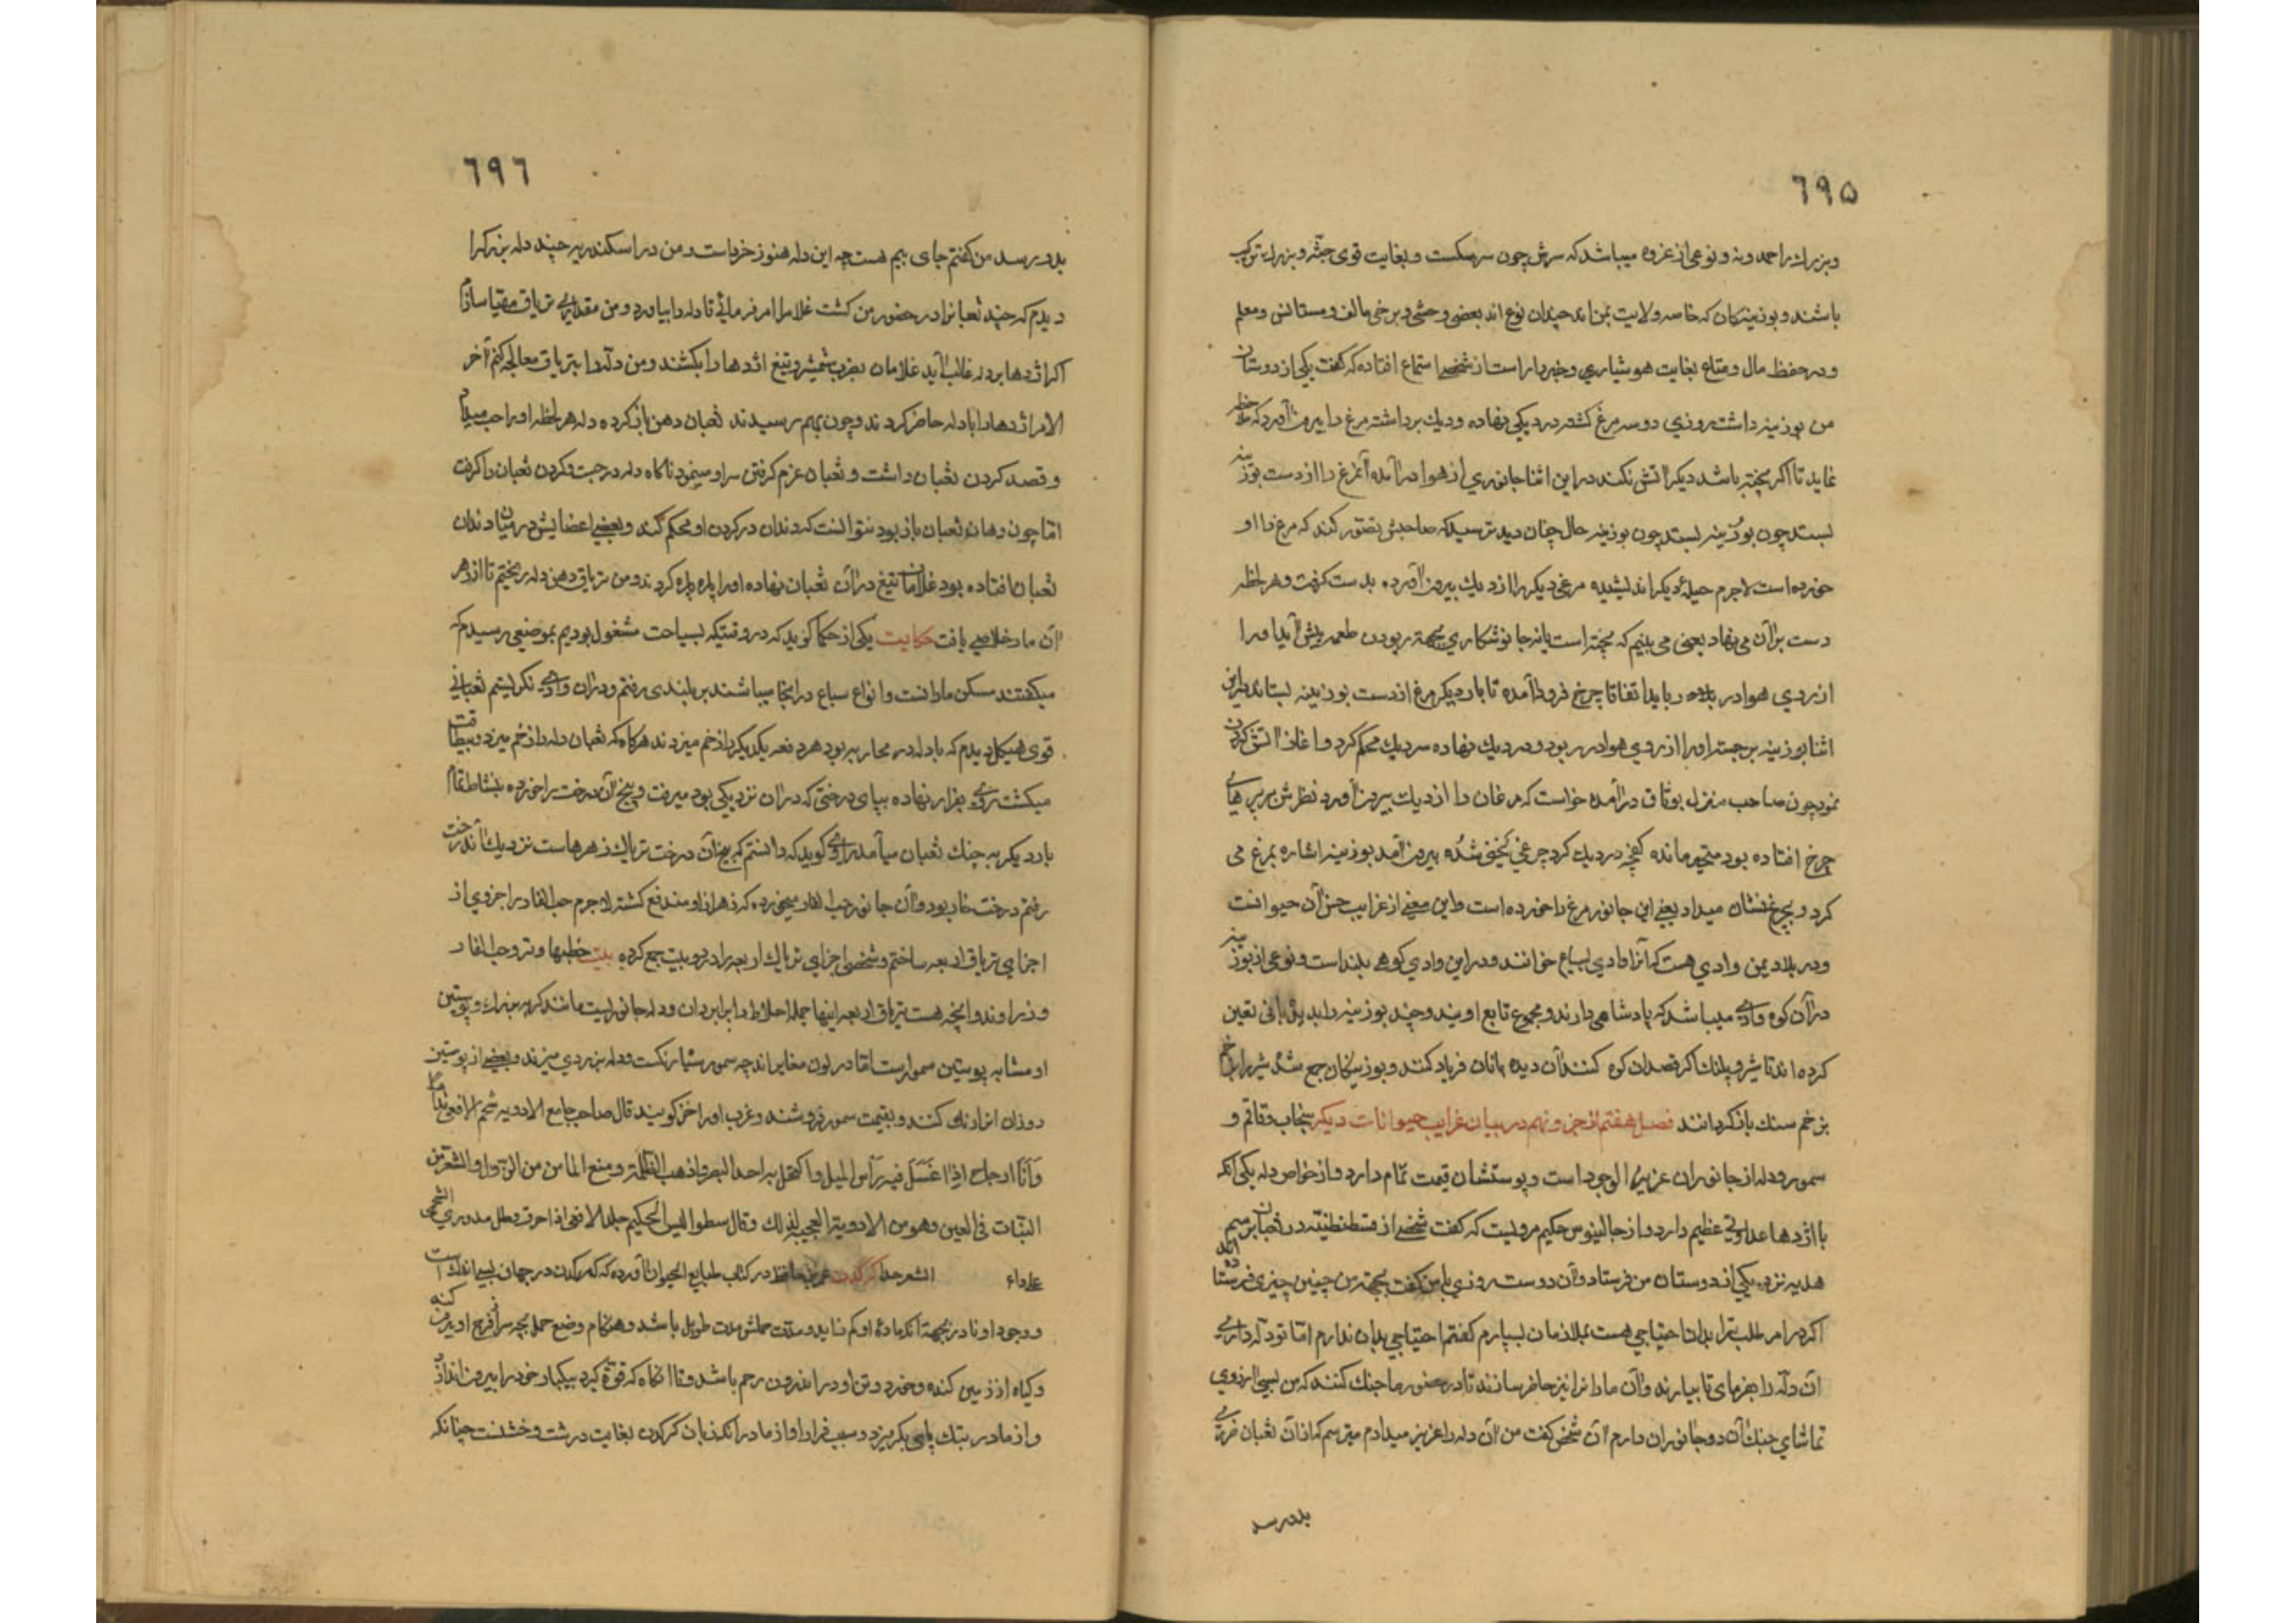 ٦٩٥
و بزرك را حمدونه و نوعی از غزوه میباشد كه سرش چون سر سكست و بغایت قوی جثه و بزرك تركیب
باشند و بوزینه كان كه خاصه ولایت یمن اند چندان نوع اند بعضی وحشی و برخی مالف و مستانس و معلم
و در حفظ مال و متاع بغایت هوشیاری و خبردار است از شخصی استماع افتاده كه گفت یكی از دوستان
من بوزینه داشت روزی دو سه مرغ كشته در دیكی نهاده و دیك برداشته مرغ را بیرون آورد كه ملاحظه
نماید تا اگر پخته باشد دیگر آتش نكند در این اثنا جانوری از هوا درآمده آنمرغ را از دست بوزینه
بستد چون بوزینه بستد چون بوزینه حال چنان دید ترسید كه صاحبش تصور كند كه مرغ را او
خورده است لاجرم حیلهٔ دیگر اندیشیده مرغی دیگر را از دیك بیرون آورده بدست گرفت و هر لحظه
دست بر آن می نهاد یعنی می بینم كه پخته است یا نه جانور شكاری بجهة ربودن طعمه پیش آید او را
از روی هوا در رباید اتفاقا چرخ فرود آمده تا بار دیگر مرغ از دست بوزینه بستاند در این
اثنا بوزینه برجسته او را از روی هوا در ربود و در دیك نهاده سر دیك محكم كرد و اغاز آتش كردن
نمود چون صاحب منزل بوثاق درآمده خواست كه مرغان را از دیك بیرون آورد نظرش بر پرهای
چرخ افتاده بود متحیر مانده كفچه در دیك كرد چرغی بیرون آمد بوزینه اشاره بمرغ می
كرد و بچرغ نشان میداد یعنی این جانور مرغ را خورده است و این معنی از غرایب جنس آن حیوانست
و در بلاد یمن وادی هست كه آنرا وادی سباع خوانند و در این وادی كوهی بلند است و نوعی از بوزینه
در آن كوه وادی میباشد كه پادشاهی دارند و مجموع تابع اویند و چند بوزینه را بدیدبانی تعین
كرده اند تا شیر و پلنك اگر قصد آن كوه كنند آن دیده بانان فریاد كنند و بوزینكان جمع شده شیر را
بزخم سنك باز گردانند فصل هفتم از جزو نهم در بیان غرایب حیوانات دیگر سنجاب و قاقم و
سمور و دله از جانوران عزیز الوجود است و پوستشان قیمت تمام دارد و از خواص دله یكی آنكه
با اژدها عداوتی عظیم دارد و از جالینوس حكیم مرویست كه گفت شخصی از قسطنطنیه در ثعبان برسم
هدیه نزد یكی از دوستان من فرستاد و آن دوست روزی با من گفت بجهة من چنین چیزی فرستاده اند
اگر در امر طلب ترا بدان احتیاجی هست بملازمان بسپارم گفتم احتیاجی بدان ندارم اما تو دله داری
آن دله را بفرمای تا بیارند و آن مارانرا نیز حاضر سازند تا در حضور ما جنك كنند كه من بسی آرزوی
تماشای جنك آن دو جانوران دارم آن شخص گفت من آن دله را عزیز میدارم میترسم كه از آن ثعبان ضرری
بدو رسد
٦٩٦
بدو رسد من گفتم جای بیم هست چه این دله هنوز خرد است و من در اسكندریه چند دله بزرك را
دیدم كه چند ثعبانرا در حضور من كشت غلامرا امر فرمائی تا دله را بیاورد و من مقداری تریاق مهیا سازم
اگر اژدها بر دله غالب آید غلامان بضرب شمشیر و تیغ اژدها را بكشند و من دله را بتریاق معالجه كنم آخر
الامر اژدها را با دله حاضر كردند و چون بهم رسیدند ثعبان دهن باز كرده دله هر لحظه او را میداد
و قصد گردن ثعبان داشت و ثعبان عزم گرفتن سر او مینمود ناگاه دله در جست و گردن ثعبان را گرفت
اما چون دهان ثعبان باز بود نتوانست كه دندان در گردن او محكم كند و بعضی اعضایش در میان دندان
ثعبان افتاده بود غلامان تیغ در آن ثعبان نهاده او را پاره پاره كردند و من تریاق در دهن دله ریختم تا از زهر
آن مار خلاصی یافت حكایت یكی از حكما گوید كه در وقتیكه بسیاحت مشغول بودیم بموضعی رسیدم كه
میگفتند مسكن مارانست و انواع سباع در اینجا میباشند بر بلندی رفتم و در آن وادی نگریستم ثعبانی
قوی هیكل دیدم كه با دله در محاربه بود هر دفعه یكدیگر را زخم میزدند هرگاه كه ثعبان دله را زخم میزد و بیطاقت
میگشت روی بفرار نهاده بپای درختی كه در آن نزدیكی بود میرفت و بیخ آن درخت را خورده بنشاط تمام
بار دیگر به جنك ثعبان میآمد راوی گوید كه دانستم كه بیخ آن درخت تریاك زهرهاست نزدیك آندرخت
رفتم درخت خار بود و آن جانور حب الغار میخورده كه زهر از او مندفع گشته لاجرم حب الغار را جزوی از
اجزای تریاق اربعه ساختم و شخصی اجزای تریاك اربعه را در دو بیت جمع كرده بیت خطیها و تر و حب الغار
و زراوند و آنچه هست تریاق اربعه اینها جمله اخلاط را برابر دان و دله جانوریست مانند گربه بزرك و پوستین
او مشابه پوستین سمور است اما در لون مغایراند چه سمور سیاه رنگست و دله بزردی میزند و بعضی از پوستین
دوزان آنرا رنك كنند و بقیمت سمور فروشند و عرب او را خز گویند قال صاحب جامع الادویه شحم الافعی
اذا غسل فیه رأس المیل و اكتحل به احد البصر و اذهب الظلمة و منع الماء من من النزول و الشعر من
النبات فی العین و هو من الادویة العجیبة لذلك و قال سطوالیس الحكیم جلد الافعی اذا احرق و طلی مدوری
علی داء الشعر جدا كرگدن در كتاب طبایع الحیوان آورده كه كرگدن در جهان بسیار اندكست
و وجود او نادر بجهة آنكه مادهٔ او كم زاید و مدت حملش مدت طویل باشد و هنگام وضع حمل بچه سر از فرج او بیرون كند
و گیاه از زمین كنده و خورد و تن او در اندرون رحم باشد و تا آنگاه كه قوة گیرد بیكبار خود را بیرون اندازد
و از مادر بتك پای بگریزد و سبب فرار او از مادر آنكه زبان كرگدن بغایت درشت و خشنست چنانكه